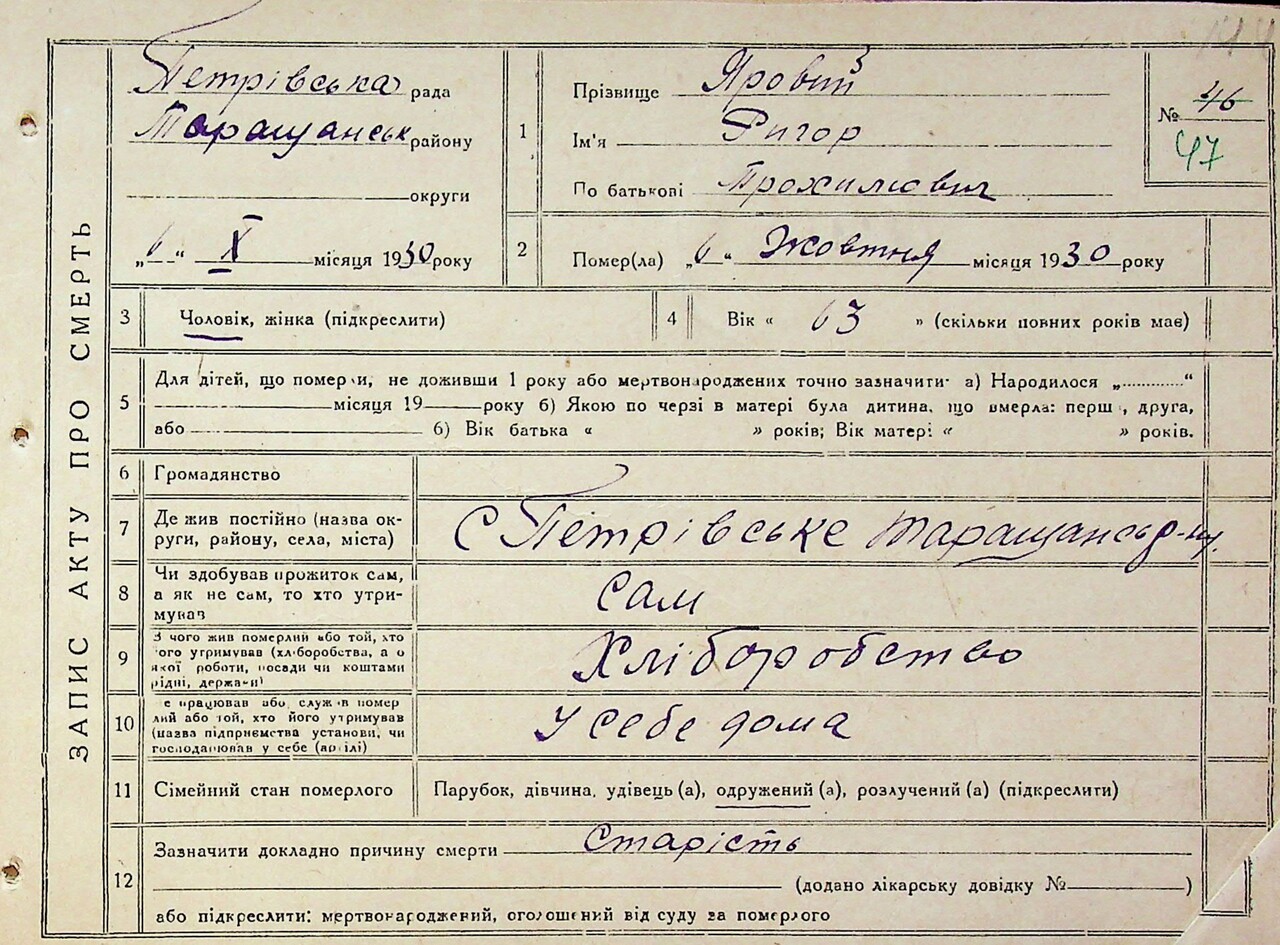 ЗАПИС АКТУ ПРО СМЕРТЬ
Петрівська рада
Таращанськ району
округи
„6“ X місяця 1930 року
1
Прізвище Яровий
Ім'я Григор
По батькові Трохимович
№ 46
47
2 Помер(ла) „6“ Жовтня місяця 1930 року
3 Чоловік, жінка (підкреслити)
4 Вік « 63 » (скільки повних років має)
5 Для дітей, що померли, не доживши 1 року або мертвонароджених точно зазначити- а) Народилося „............“
місяця 19 року б) Якою по черзі в матері була дитина, що вмерла: перша, друга,
або 6) Вік батька « » років; Вік матері « » років.
6 Громадянство
7 Де жив постійно (назва ок-
руги, району, села, міста)
с Петрівське Таращанськ р-ну.
8 Чи здобував прожиток сам,
а як не сам, то хто утри-
мував
сам
9 З чого жив померлий або той, хто
його утримував (хліборобства, а о
якої роботи, посади чи коштами
рідні, держави)
Хліборобство
10 е працював або служив помер
лий або той, хто його утримував
(назва підприємства установи, чи
господарював у себе (в р ілі)
У себе дома
11 Сімейний стан померлого
Парубок, дівчина, удівець (а), одружений (а), розлучений (а) (підкреслити)
12 Зазначити докладно причину смерти Старість
(додано лікарську довідку № )
або підкреслити: мертвонароджений, оголошений від суду за померлого